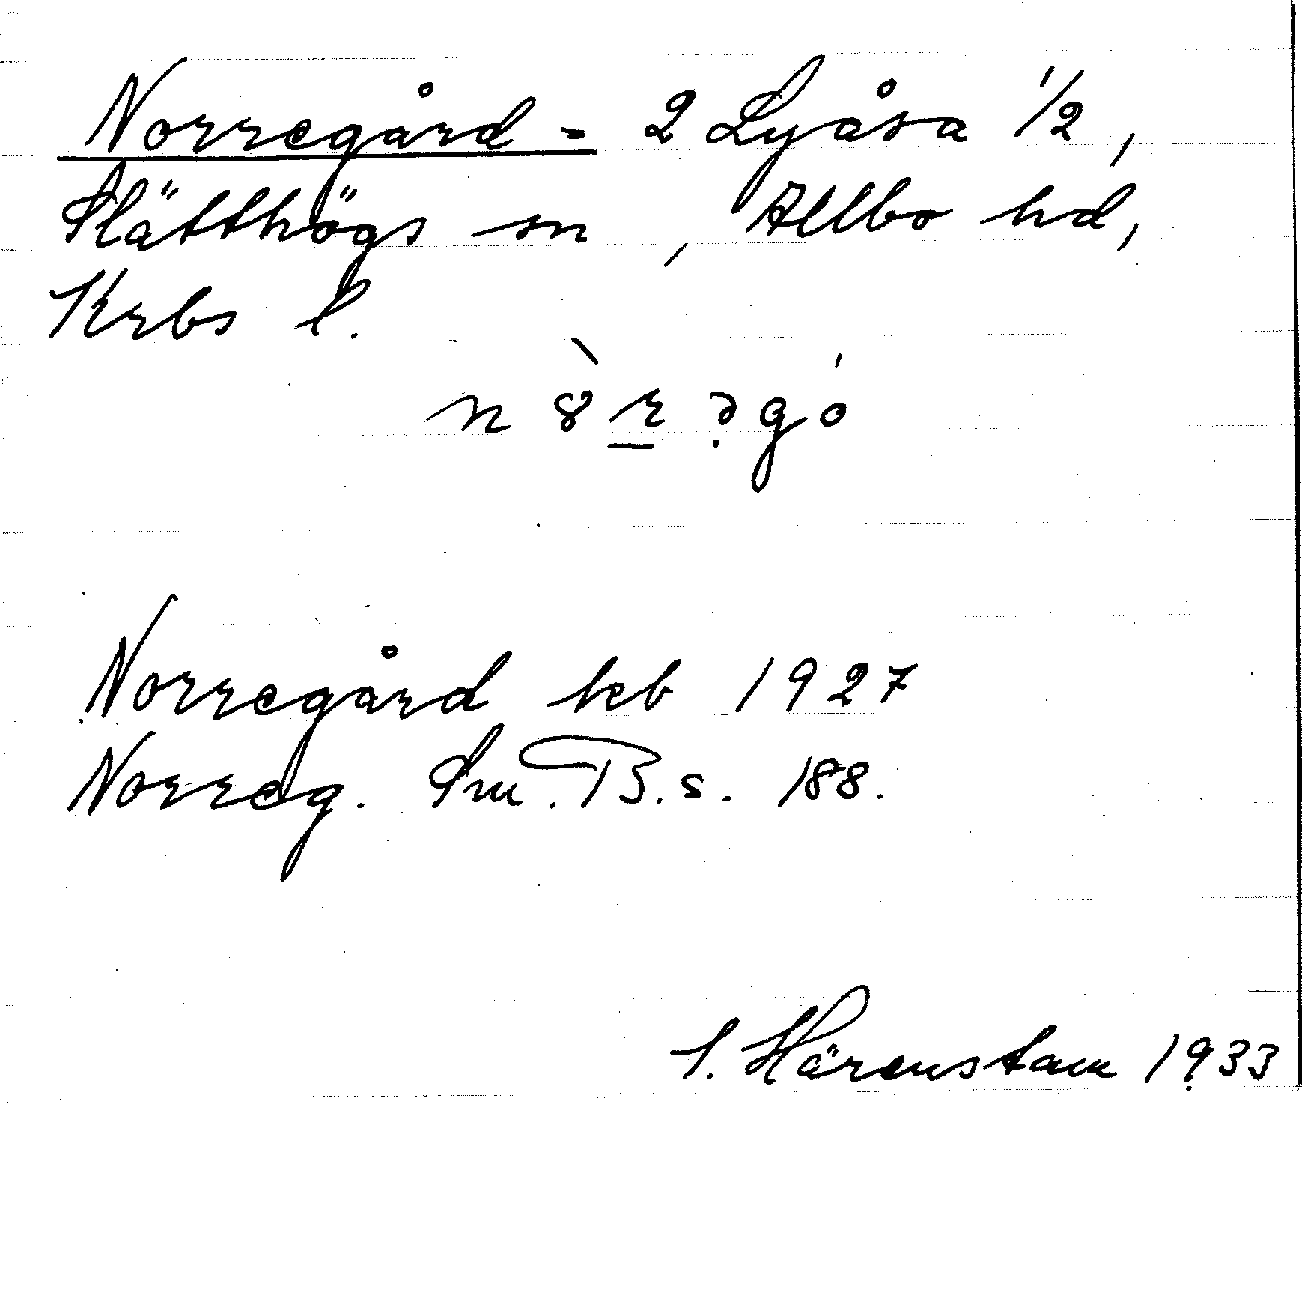 Norregård = 2 Lyåsa 1/2,
Slätthögs sn, Allbo hd,
Krbs l.
n8̀r̲ə̣gó
Norregård keb 1927
Norreg. Sm.B.s. 188.
S. Härenstam 1933